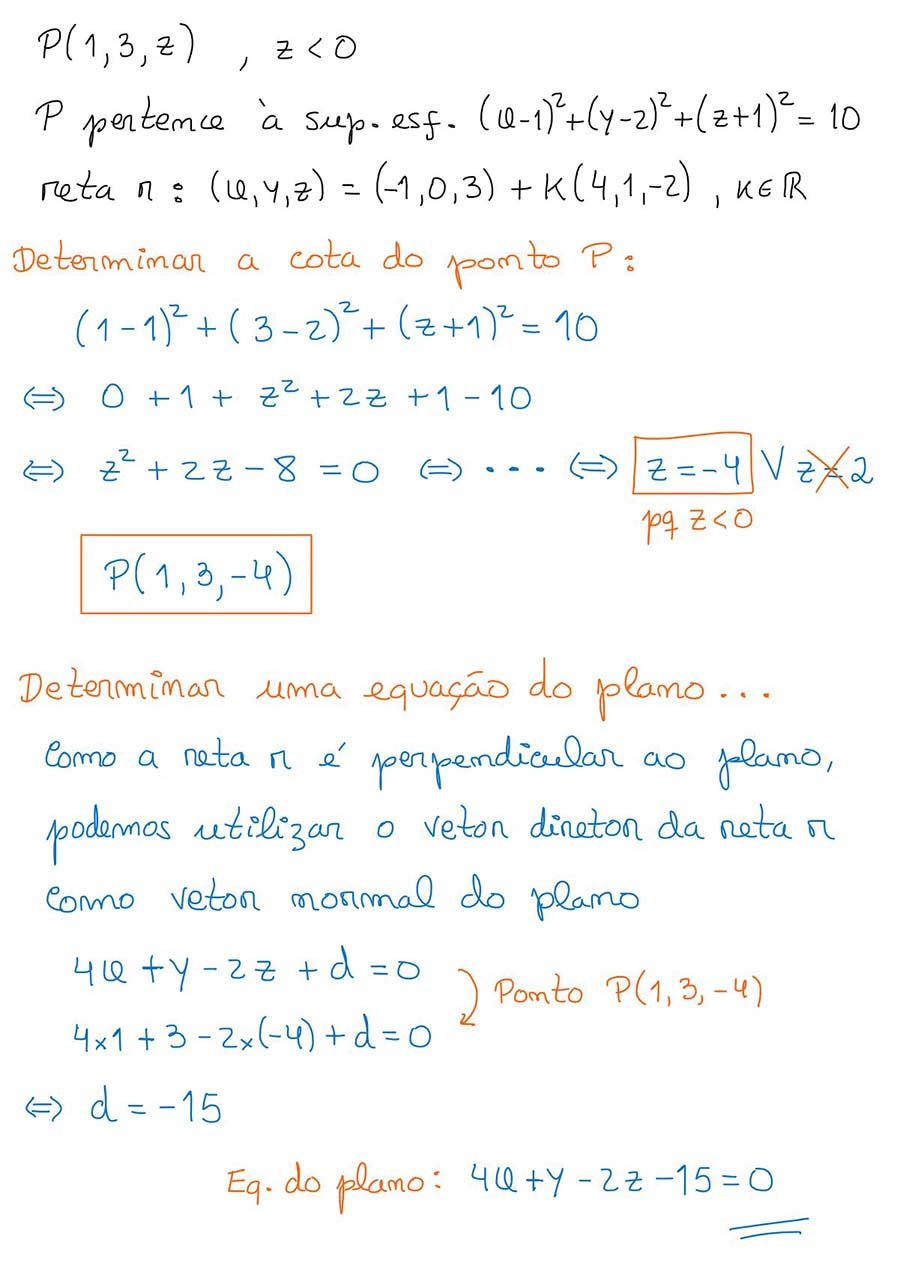 P(1,3,z) , z<0
P pertence à sup.esf. (x-1)²+(y-2)²+(z+1)²=10
reta r: (x,y,z) = (-1,0,3) + K(4,1,-2), K∈ℝ
Determinar a cota do ponto P:
(1-1)²+(3-2)²+(z+1)²=10
⇔ 0+1+z²+2z+1-10
⇔ z²+2z-8=0 ⇔ ... ⇔ z=-4 ∨ z=2
pq z<0
P(1,3,-4)
Determinar uma equação do plano...
Como a reta r é perpendicular ao plano,
podemos utilizar o vetor diretor da reta r
como vetor normal do plano
4x+y-2z+d=0
Ponto P(1,3,-4)
4×1+3-2×(-4)+d=0
⇔ d=-15
Eq. do plano: 4x+y-2z-15=0